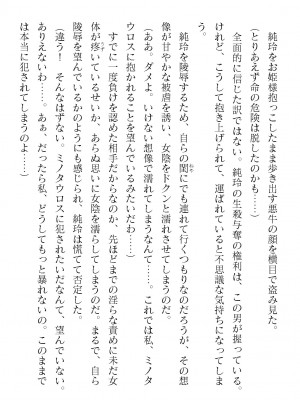 純玲をお姫様抱っこしたまま歩き出す悪牛の顔を横目で盗み見た。
(とりあえず命の危険は脱したのかも……)
全面的に信じた訳ではない。純玲の生殺与奪の権利は、この男が握っている。
けれど、こうして抱き上げられて、運ばれていると不思議な気持ちになってしま
う。
純玲を陵辱するため、自らの閨にでも連れて行くつもりなのだろうが、その想
像が甘やかな被虐を誘い、女陰をトクンと濡れさせてしまうのだ。
(ああ、ダメよ。いけない想像で濡れてしまうなんて……。これでは私、ミノタ
ウロスに抱かれることを望んでいるみたいだわ……)
すでに一度負けを認めた相手だからなのか、先ほどまでの淫らな責めに未だ女
体が疼いているせいか、あらぬ思いに女陰を濡らしてしまうのだ。まるで、自ら
陵辱を望んでいるのようにも感じられ、純玲は慌てて否定した。
(違う！　そんなはずない。ミノタウロスに抱かれたいだなんて、望んでいない。
ありえないわ……。あぁ、だったら私、どうしてもっと暴れないの。このままで
は本当に犯されてしまうのよ……)